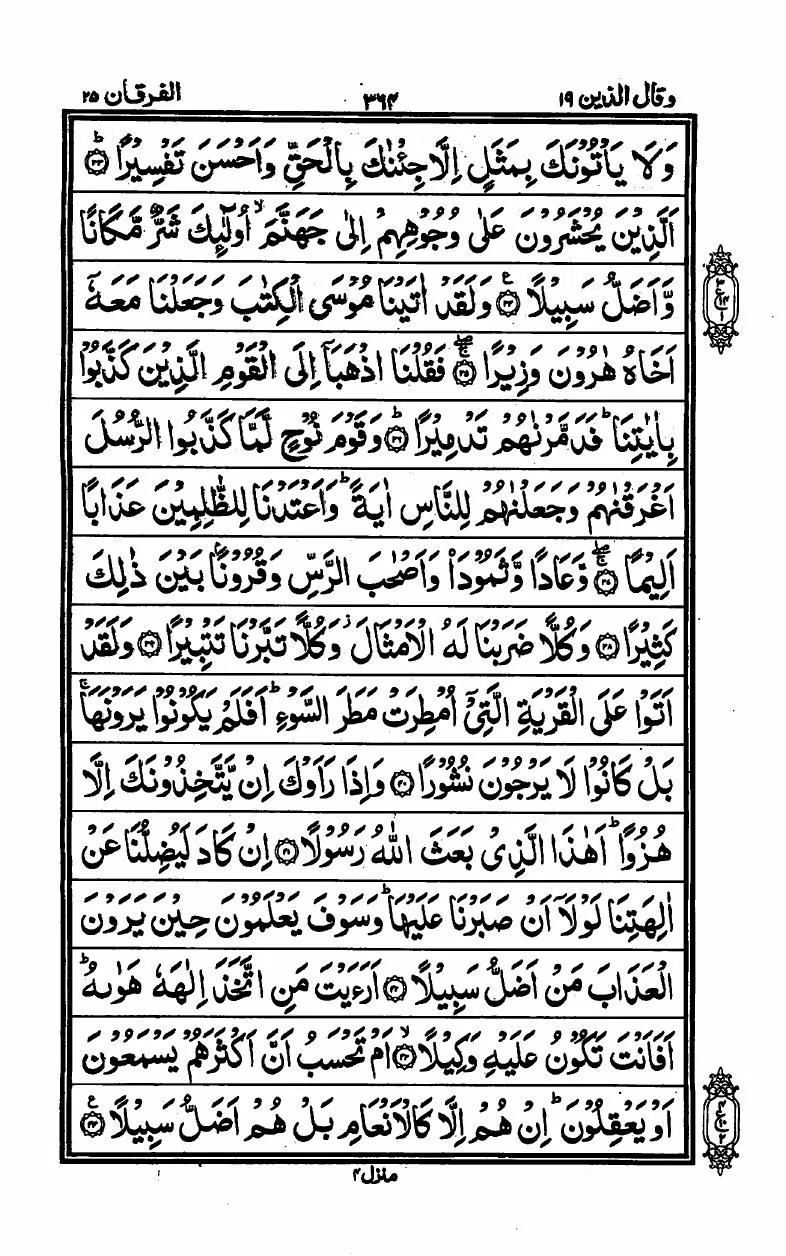 وقال الذين ١٩ ٣٦٤ الفرقان ٢٥
وَلَا يَاْتُوْنَكَ بِمَثَلٍ اِلَّا جِئْنٰكَ بِالْحَقِّ وَاَحْسَنَ تَفْسِيْرًا ؕ ۝٣٣
اَلَّذِيْنَ يُحْشَرُوْنَ عَلٰى وُجُوْهِهِمْ اِلٰى جَهَنَّمَ ۙ اُولٰٓئِكَ شَرٌّ مَّكَانًا
وَّاَضَلُّ سَبِيْلًا ۝٣٤ۧ وَلَقَدْ اٰتَيْنَا مُوْسَى الْكِتٰبَ وَجَعَلْنَا مَعَهٗۤ
اَخَاهُ هٰرُوْنَ وَزِيْرًا ۝٣٥ۚۖ فَقُلْنَا اذْهَبَاۤ اِلَى الْقَوْمِ الَّذِيْنَ كَذَّبُوْا
بِاٰيٰتِنَا ؕ فَدَمَّرْنٰهُمْ تَدْمِيْرًا ؕ ۝٣٦ وَقَوْمَ نُوْحٍ لَّمَّا كَذَّبُوا الرُّسُلَ
اَغْرَقْنٰهُمْ وَجَعَلْنٰهُمْ لِلنَّاسِ اٰيَةً ؕ وَاَعْتَدْنَا لِلظّٰلِمِيْنَ عَذَابًا
اَلِيْمًا ۝٣٧ۚۖ وَّعَادًا وَّثَمُوْدَا۟ وَاَصْحٰبَ الرَّسِّ وَقُرُوْنًۢا بَيْنَ ذٰلِكَ
كَثِيْرًا ۝٣٨ وَكُلًّا ضَرَبْنَا لَهُ الْاَمْثَالَ ؗ وَكُلًّا تَبَّرْنَا تَتْبِيْرًا ۝٣٩ وَلَقَدْ
اَتَوْا عَلَى الْقَرْيَةِ الَّتِيْۤ اُمْطِرَتْ مَطَرَ السَّوْءِ ؕ اَفَلَمْ يَكُوْنُوْا يَرَوْنَهَا ۚ
بَلْ كَانُوْا لَا يَرْجُوْنَ نُشُوْرًا ۝٤٠ وَاِذَا رَاَوْكَ اِنْ يَّتَّخِذُوْنَكَ اِلَّا
هُزُوًا ؕ اَهٰذَا الَّذِيْ بَعَثَ اللّٰهُ رَسُوْلًا ۝٤١ اِنْ كَادَ لَيُضِلُّنَا عَنْ
اٰلِهَتِنَا لَوْلَاۤ اَنْ صَبَرْنَا عَلَيْهَا ؕ وَسَوْفَ يَعْلَمُوْنَ حِيْنَ يَرَوْنَ
الْعَذَابَ مَنْ اَضَلُّ سَبِيْلًا ۝٤٢ اَرَءَيْتَ مَنِ اتَّخَذَ اِلٰهَهٗ هَوٰىهُ ؕ
اَفَاَنْتَ تَكُوْنُ عَلَيْهِ وَكِيْلًا ۙ ۝٤٣ اَمْ تَحْسَبُ اَنَّ اَكْثَرَهُمْ يَسْمَعُوْنَ
اَوْ يَعْقِلُوْنَ ؕ اِنْ هُمْ اِلَّا كَالْاَنْعَامِ بَلْ هُمْ اَضَلُّ سَبِيْلًا ۝٤٤ۧ
منزل ٤